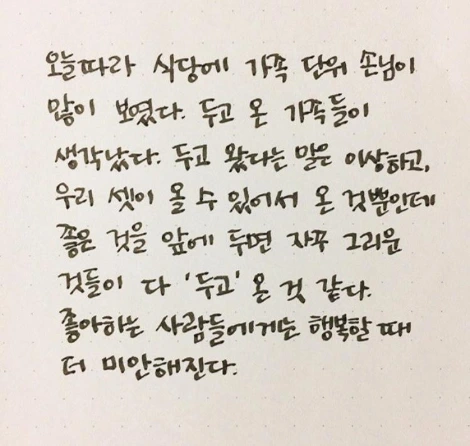 오늘따라 식당에 가족 단위 손님이
많이 보였다. 두고 온 가족들이
생각났다. 두고 왔다는 말은 이상하고,
우리 셋이 올 수 있어서 온 것뿐인데
좋은 것을 앞에 두면 자꾸 그리운
것들이 다 '두고' 온 것 같다.
좋아하는 사람들에게는 행복할 때
더 미안해진다.